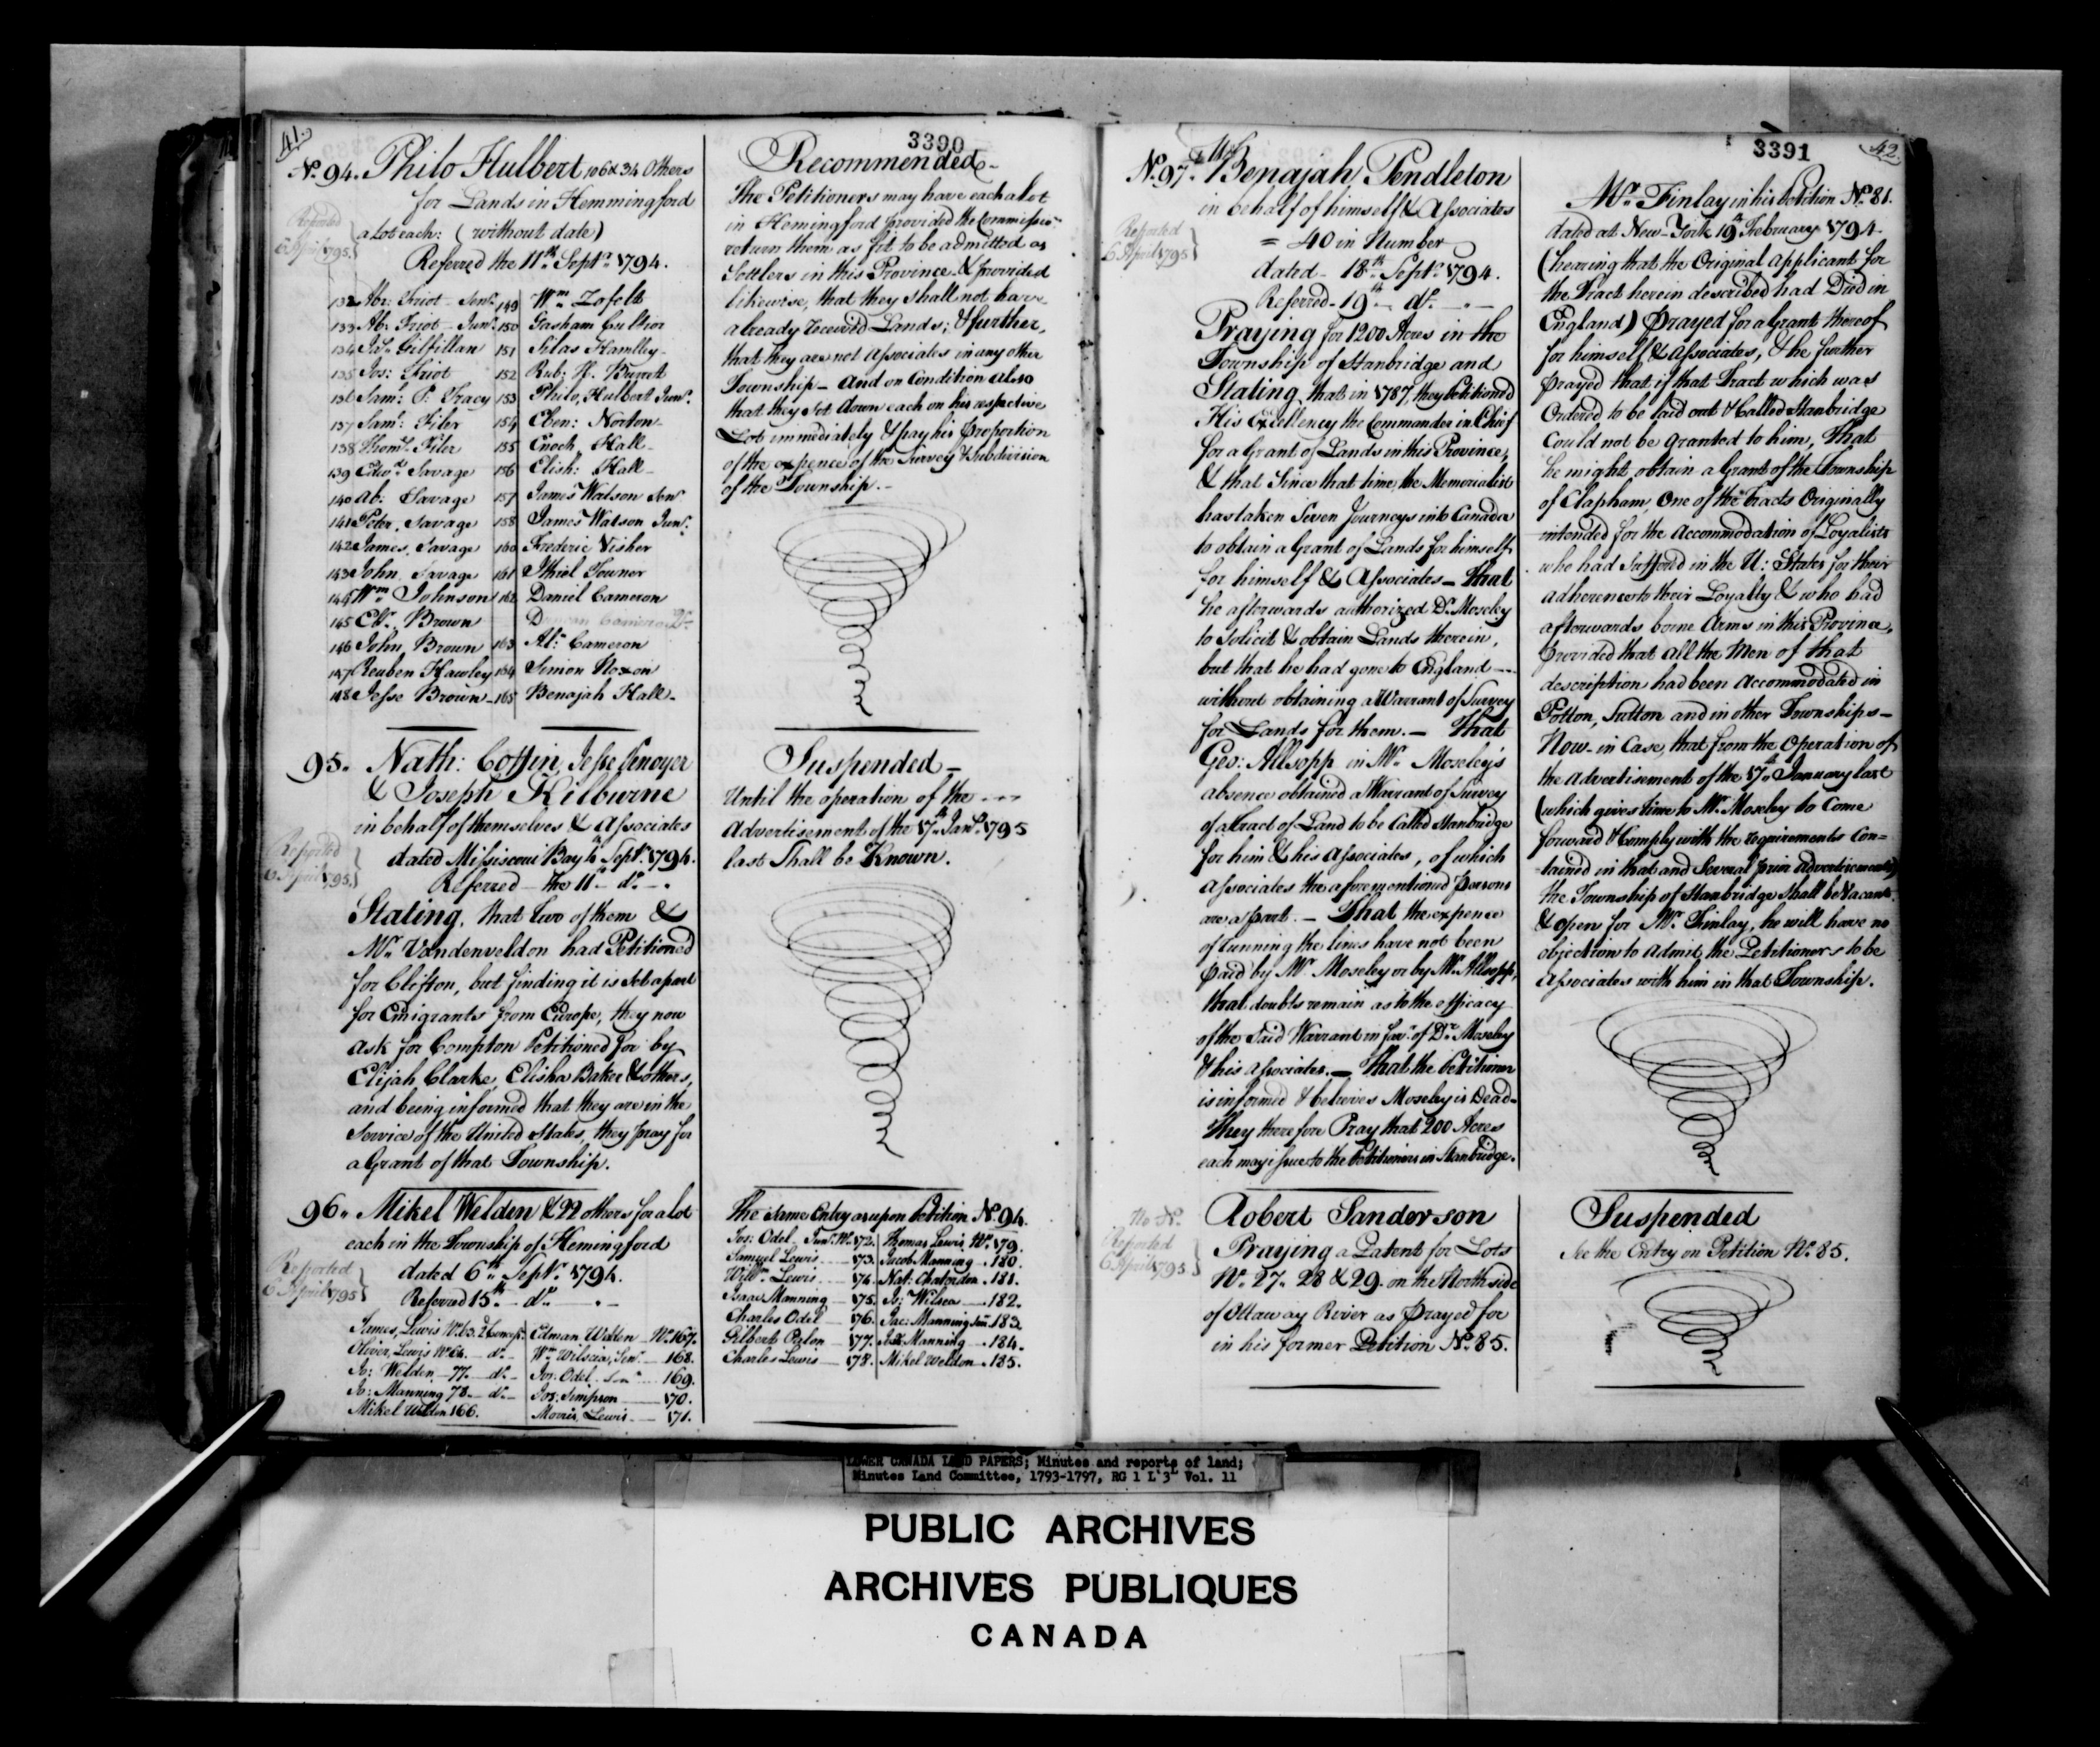 41.
3390
No. 94. Philo Hulbert, 106 & 34 Others
for Lands in Hemmingford
Reported
6 April 1795.
a Lot each: (without date)
Referred the 11th Septr. 1794.
132 Abr: Friot - Senr.
133 Ab: Friot - Junr.
134 Jas. Gilfillan
135 Jos: Friot
136 Saml: P: Tracy
137 Saml: Filer
138 Thoms. Filer
139 Edwd. Savage
140 Ab: Savage
141 Peter Savage
142 James Savage
143 John Savage
144 Wm. Johnson
145 Brown
146 John Brown
147 Reuben Hawley
148 Jesse Brown
149 Wm. Zofelt
150 Gasham
151 Silas Hamlley
152 Rub: Burrett
153 Philo, Hulbert Junr.
154 Eben: Norton
155 Enoch Hall
156 Elish: Hall
157 James Watson Senr.
158 James Watson Junr.
160 Frederic Visher
161 Ithiel Towner
162 Daniel Cameron
Duncan Cameron
163 Al: Cameron
164 Simon Noxon
165 Benajah Hall
Recommended
The Petitioners may have each a lot
in Hemingford provided the Commissrs.
return them as fit to be admitted as
Settlers in this Province & provided
likewise, that they shall not have
already received Lands; & further,
that they are not Associates in any other
Township - And on Condition also
that they set down each on his respective
Lot immediately & pay his proportion
of the expence of the Survey & Subdivision
of the Township.
95. Nath: Coffin, Jesse Penoyer
& Joseph Kilburne
in behalf of themselves & Associates
Reported
6 April 1795.
dated Missiscoui Bay Septr. 1794.
Referred - the 11th do.
Stating, that two of them &
Mr. Vandenveldon had Petitioned
for Clifton, but finding it is set apart
for Emigrants from Europe, they now
ask for Compton Petitioned for by
Elijah Clarke, Elisha Baker & others,
and being informed that they are in the
Service of the United States, they pray for
a Grant of that Township.
Suspended
Until the operation of the
Advertisement of the 17th Jany. 1795
last Shall be Known.
96. Mikel Welden & 22 others for a lot
each in the Township of Hemingford
Reported
6 April 1795
dated 6th Septr. 1794.
Referred 15th do.
James, Lewis No. 63. 2 Concesn.
Oliver, Lewis No. 64. do.
Jo: Welden 77. do.
Jo: Manning 78. do.
Mikel Welden 166.
Edman Welden No. 167.
Wm. Wilscia, Senr. 168.
Jos: Odel Senr. 169.
Jos: Simpson 170.
Morris Lewis 171.
The Same Entry as upon Petition No. 94.
Jos: Odel Junr. No. 172.
Samuel Lewis 173.
Willm. Lewis 174.
Isaac Manning 175.
Charles Odel 176.
Gilbert 177.
Charles Lewis 178.
Thomas Lewis No. 179.
Jacob Manning 180.
Nat: Chaterdon 181.
Jo: Wilsea 182.
Jac: Manning Junr. 183.
Manning 184.
Mikel Weldon 185.
3391
42.
No. 97. Benajah Pendleton
in behalf of himself & Associates
Reported
6 April 1795
= 40 in Number
dated - 18th Septr. 1794.
Referred - 19th do.
Praying for 1200 Acres in the
Township of Stanbridge and
Stating, that in 1787, they Petitioned
His Excellency the Commander in Chief
for a Grant of Lands in this Province,
& that Since that time, the Memorialist
has taken Seven Journeys into Canada
to obtain a Grant of Lands for himself
for himself & Associates - that
he afterwards authorized Dr. Moseley
to Solicit & obtain Lands therein,
but that he had gone to England
without obtaining a Warrant of Survey
for Lands for them. - That
Geo: Allsopp in Mr. Moseley's
absence obtained a Warrant of Survey
of a tract of Land to be Called Stanbridge
for him & his Associates, of which
Associates the aforementioned persons
are a part. - That the expence
of running the lines have not been
paid by Mr. Moseley or by Mr. Allsopp,
that doubts remain as to the efficacy
of the Said Warrant in favr. of Dr. Moseley
& his Associates. - That the Petitioner
is informed & believes Moseley is Dead -
They therefore Pray that 200 Acres
each may issue to the Petitioners in Stanbridge.
Mr. Finlay in his Petition No. 81.
dated at New-York 19th February 1794
(hearing that the Original applicant for
the Tract herein described had Died in
England) Prayed for a Grant thereof
for himself & Associates, & he further
prayed that if that Tract which was
Ordered to be laid out & Called Stanbridge
Could not be granted to him, That
he might obtain a Grant of the Township
of Clapham, One of the Tracts Originally
intended for the Accommodation of Loyalists
who had Suffered in the U: States for their
adherence to their Loyalty & who had
afterwards borne Arms in this Province,
provided that all the Men of that
description had been Accommodated in
Potton, Sutton and in other Townships -
Now - in Case, that from the Operation of
the Advertisement of the 17th January last
(which gives time to Mr. Moseley to Come
forward & Comply with the requirements Con=
tained in that and Several prior Advertisements)
the Township of Stanbridge Shall be Vacant
& open for Mr. Finlay, he will have no
objection to Admit the Petitioners to be
Associates with him in that Township.
No No.
Reported
6 April 1795.
Robert Sanderson
Praying a Patent for Lots
No. 27. 28 & 29. on the North side
of Ottaway River as Prayed for
in his former Petition No. 85.
Suspended
See the Entry on Petition No. 85.
LOWER CANADA LAND PAPERS; Minutes and reports of land;
Minutes Land Committee, 1793-1797, RG 1 L 3L Vol. 11
PUBLIC ARCHIVES
ARCHIVES PUBLIQUES
CANADA